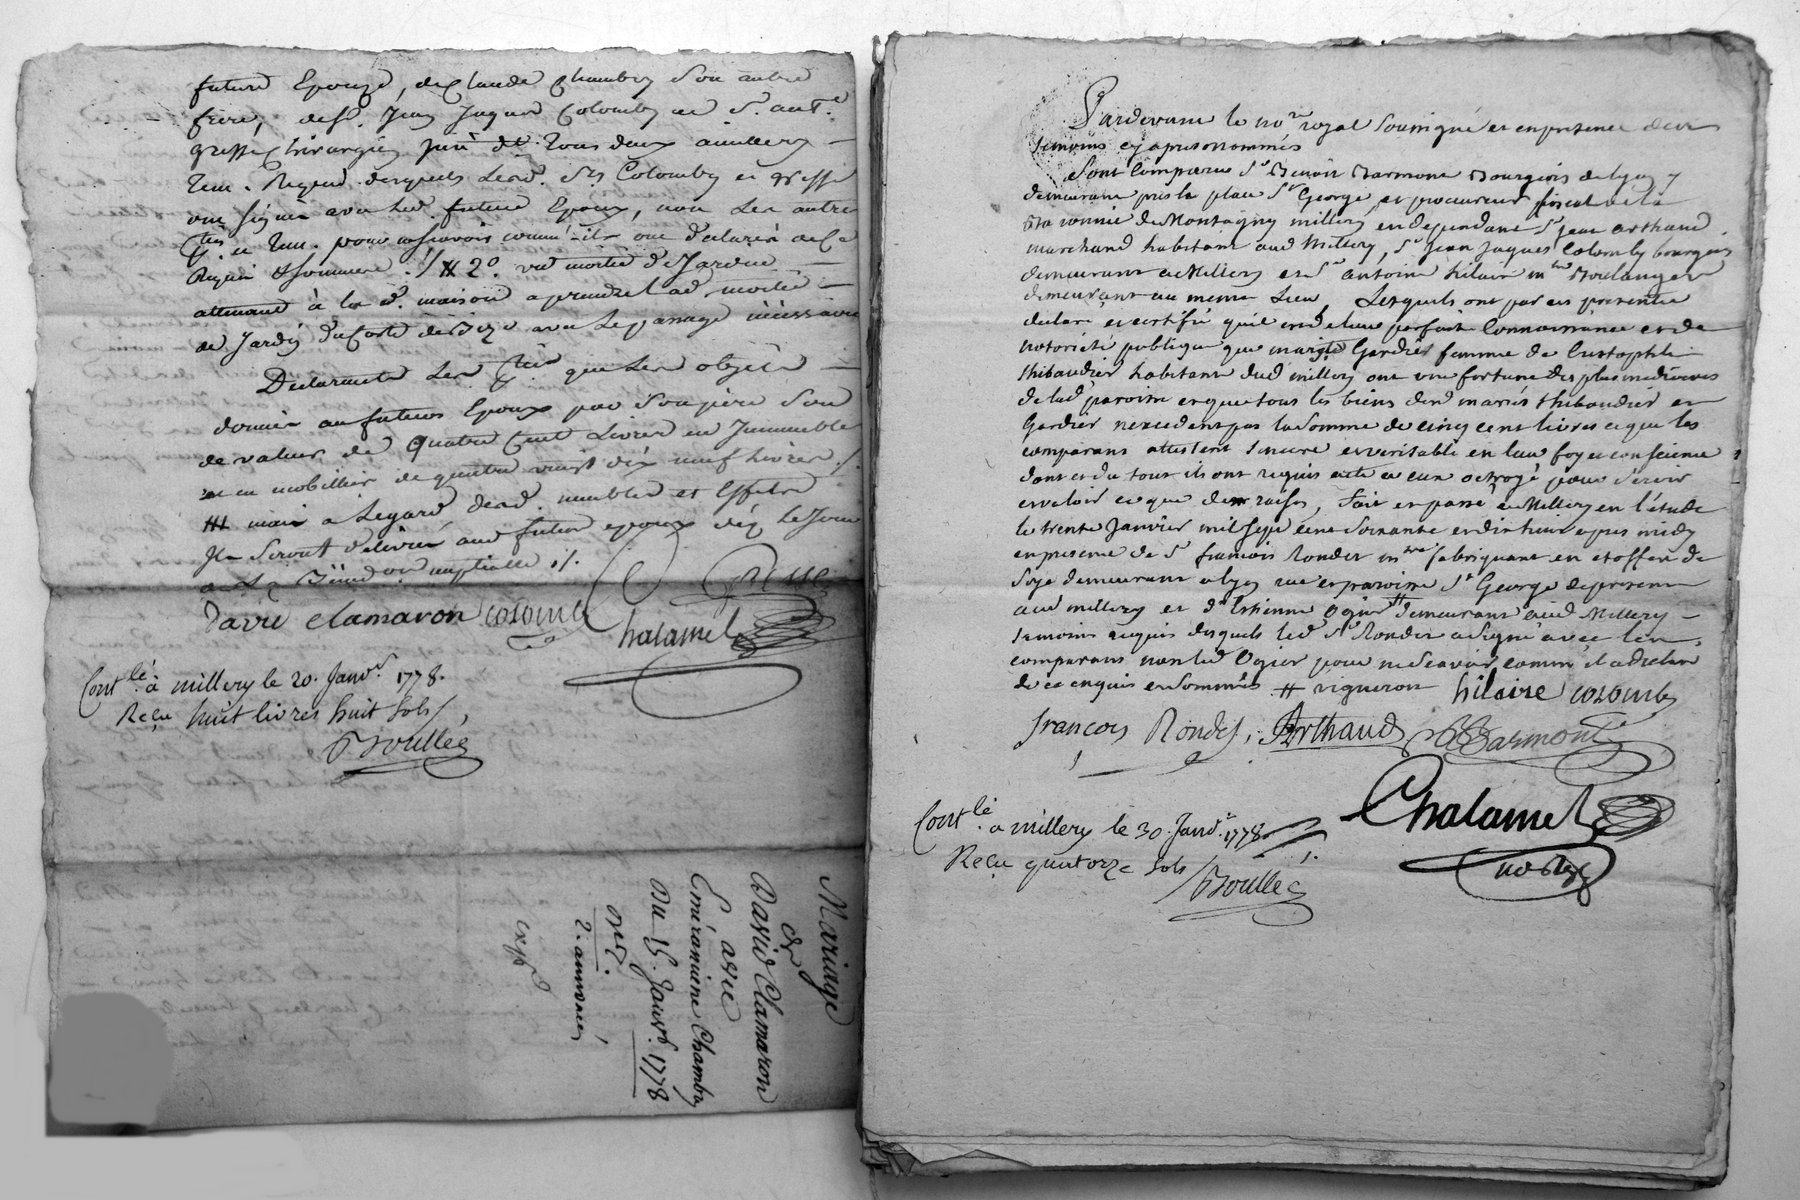 future Epouze, de Claude Chambry son autre
frere, de Sr. Jean Jaques Colomby et Sr. antne.
gresse Chirurgien tous deux a millery
tem. Requis desquels lesd. Srs Colomby et Gresse
ont signé avec led. futur Epoux, non les autres
pties et tem. pour ne sçavoir comm' ils ont declaré de ce
Requis & sommés ./. # 2o. une moitié de Jardin
attenant à lad. maison a prendre lad. moitié
de Jardin du Costé de avec le passage nécessaire
Declarants les pties que les objets
donnés au futur Epoux par son père sont
de valeur de quatre Cent Livres en Immeubles
et en mobillier de quatre vingt dix neuf Livres ./.
mais a Legard desd. meubles et Effets
Ils seront délivrés aud futur epoux dès le Jour
de la Bénédon nuptialle ./.
Davie clamaron colombi Gresse
Chalamel
Contlé. à millery le 20. Janvr. 1778.
Reçu huit livres huit sols
Boullée
Mariage
de
David Clamaron
avec
Emeranciene Chambry
Du 15. Janvr. 1778
2. annexes
expé
Pardevant le nore royal soussigné et en presence des
temoins cy apres nommés
Sont Comparus Sr Benoit Barmont Bourgeois de Lyon y
demeurant près la place St George, et procureur fiscal de la
Baronnie de Montagny millery en dependant Sr jean arthaud
marchand habitant aud Millery, Sr Jean Jaques Colomby bourgeois
demeurant a Millery et Sr antoine hilaire mtre Boulanger
demeurant au meme Lieu, Lesquels ont par ces presentes
declaré et certifié qu'il est de leur parfaite Connoissance et de
notoriété publique que margte Gardier femme de Cristophle
thibaudier habitants dud millery ont une fortune des plus mediocres
de lad paroisse et que tous les biens desd mariés thibaudier et
Gardier n'excedent pas la somme de cinq cent livres ce que les
comparans attestent sincere et veritable en leur foy et conscience
dont et du tout ils ont requis acte a eux octroyé pour servir
et valoir ce que de raison, fait et passé a Millery en l'étude
le trente Janvier mil sept cent soixante et dix huit apres midy
en presence de Sr francois Rondet mtre fabriquant en etoffes de
Soye demeurant a lyon rue et paroisse St George de present
aud millery et de Estienne Ogier # demeurant aud Millery
temoins requis desquels led Sr Rondet a signé avec les
comparans non led Ogier pour ne scavoir comm' il a declaré
de ce enquis et sommés # vigneron hilaire colomby
francois Rondet, Arthaud BBarmont
Chalamel
nore
Contlé. a millery le 30. Janvr. 1778
Reçu quatorze sols
Boullée